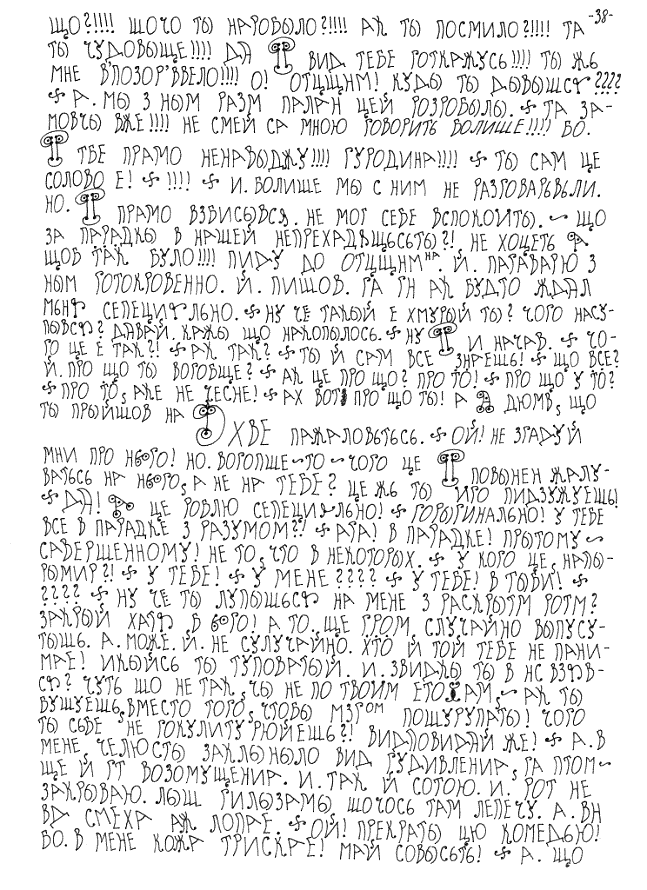 -38-
ЩО?!!!! ШОЧО ТЫ НАРОБЫЛО?!!!! АК ТЫ ПОСМИЛО?!!!! ТА
ТЫ ЧУДОВЫЩЕ!!!! ДА Я ВИД ТЕБЕ ГОТКАЖУСЬ!!!! ТЫ ЖЬ
МНЕ В'ПОЗОР'ВВЕЛО!!!! О! ОТЦЩНМ! КУДЫ ТЫ ДЫВЫШСЯ????
А. МЫ З НЫМ РАЗМ ПАЛАН ЦЕЙ РОЗРОБЫЛЫ. ТА ЗА-
МОВЧЫ ВЖЕ!!!! НЕ СМЕЙ СА МНОЮ ГОВОРИТЬ БОЛИШЕ!!!! БО.
Я ТБЕ ПРАМО НЕНАВЫДЖУ!!!! ГУРОДИНА!!!! ТЫ САМ ЦЕ
СОЛОВО Е! !!!! И. БОЛИШЕ МЫ С НИМ НЕ РАЗГОВАРЬВЬЛИ.
НО. Я ПРАМО ВЗБИСЫВСЯ. НЕ МОГ СЕБЕ ВСПОКОИТЫ. ЩО
ЗА ПАРАДКЫ В НАШЕЙ НЕПРЕХАДЯЩЬСЬТЫ?! НЕ ХОЦЕТЬ А
ЩОБ ТАК БУЛО!!!! ПИДУ ДО ОТЦЩНМНА. Й. ПАГАВАРЮ З
НЫМ ГОТОКРОВЕННО. Й. ПИШОВ. ГА ГН АК БУДТО ЖДАЛ
МЬНЯ СЕПЕЦИЯЛЬНО. НУ ЧЕ ТАКЫЙ Е ХМУРЫЙ ТЫ? ЧОГО НАСУ-
ПЫВСЯ? ДАВАЙ. КАЖЫ ЩО НАКОПЫЛОСЬ. НУ Я И НАЧАВ. ЧО-
ГО ЦЕ Е ТАК?! АК ТАК? ТЫ Й САМ ВСЕ ЗНАЕШЬ! ЩО ВСЕ?
Й. ПРО ЩО ТЫ ВОГОБЩЕ? АК ЦЕ ПРО ЩО? ПРО ТО! ПРО ЩО У ТО?
ПРО ТО, АКЕ НЕ ЧЕСНЕ! АХ ВОТ ПРО ЩО ТЫ! А Я ДЮМВ, ЩО
ТЫ ПРЫЙШОВ НА Я ХВЕ ПАЖАЛОВЬТЬСЬ. ОЙ! НЕ ЗГАДУЙ
МНИ ПРО НЬОГО! НО. ВОГОПЩЕ ТО ЧОГО ЦЕ Я ПОВЫНЕН ЖАЛУ-
ВАТЬСЬ НА НЬОГО, А НЕ НА ТЕБЕ? ЦЕ ЖЬ ТЫ ИГО ПИДЗУЖУЕШЬ!
ДА! Я ЦЕ РОБЛЮ СЕПЕЦИЯЛЬНО! ГОРЫГИНАЛЬНО! У ТЕБЕ
ВСЕ В ПАРАДКЕ З РАЗУМОМ?! АГА! В ПАРАДКЕ! ПРЫТОМУ
САВЕРШЕННОМУ! НЕ ТО, ЧТО В НЕКОТОРЫХ. У КОГО ЦЕ, НАПЫ-
РЫМИР?! У ТЕБЕ! У МЕНЕ???? У ТЕБЕ! В ТЫБИ!
???? НУ ЧЕ ТЫ ЛУПЫШЬСЯ НА МЕНЕ З РАСКРЫТМ РОТМ?
ЗАКРЫЙ ХАТЯ Б ЬОГО! А ТО. ЩЕ ГРОМ, СЛУЧАЙНО ВЫПУСУ-
ТЫШЬ. А. МОЖЕ. Й. НЕ СУЛУЧАЙНО. ХТО Й ТОЙ ТЕБЕ НЕ ПАНИ-
МАЕ! ИКЫЙСЬ ТЫ ТУПОВАТЫЙ. И. ЗВИДКЫ ТЫ В НС ВЗЯВ-
СЯ? ЧУТЬ ЩО НЕ ТАК, ЧЫ НЕ ПО ТВОИМ ЕТОЯАМ, АК ТЫ
БУШУЕШЬ, ВМЕСТО ТОГО, ЧТОБЫ МЗГОМ ПОЩУРУПАТЫ! ЧОГО
ТЫ СЬБЕ НЕ ГОКУЛИТУРЮЙЕШЬ?! ВИДПОВИДАЙ ЖЕ! А. В
МЕНЕ, ЧЕЛЮСТЫ ЗАКЛЫНЫЛО ВИД ГУДИВЛЕНИЯ, ГА ПТОМ
ЩЕ Й ГТ ВОЗОМУЩЕНИЯ. И. ТАК Й СОТОЮ. И. РОТ НЕ
ЗАКРЫВАЮ. ЛЫШ ГИЛЫЗАМЫ ШОЧОСЬ ТАМ ЛЕПЕЧУ. А. ВН
ВД СМЕХА АЖ ЛОПАЕ. ОЙ! ПРЕКРАТЫ ЦЮ КОМЕДЬЮ!
БО. В МЕНЕ КОЖА ТРИСКАЕ! МАЙ СОВЫСЬТЬ! А. ЩО